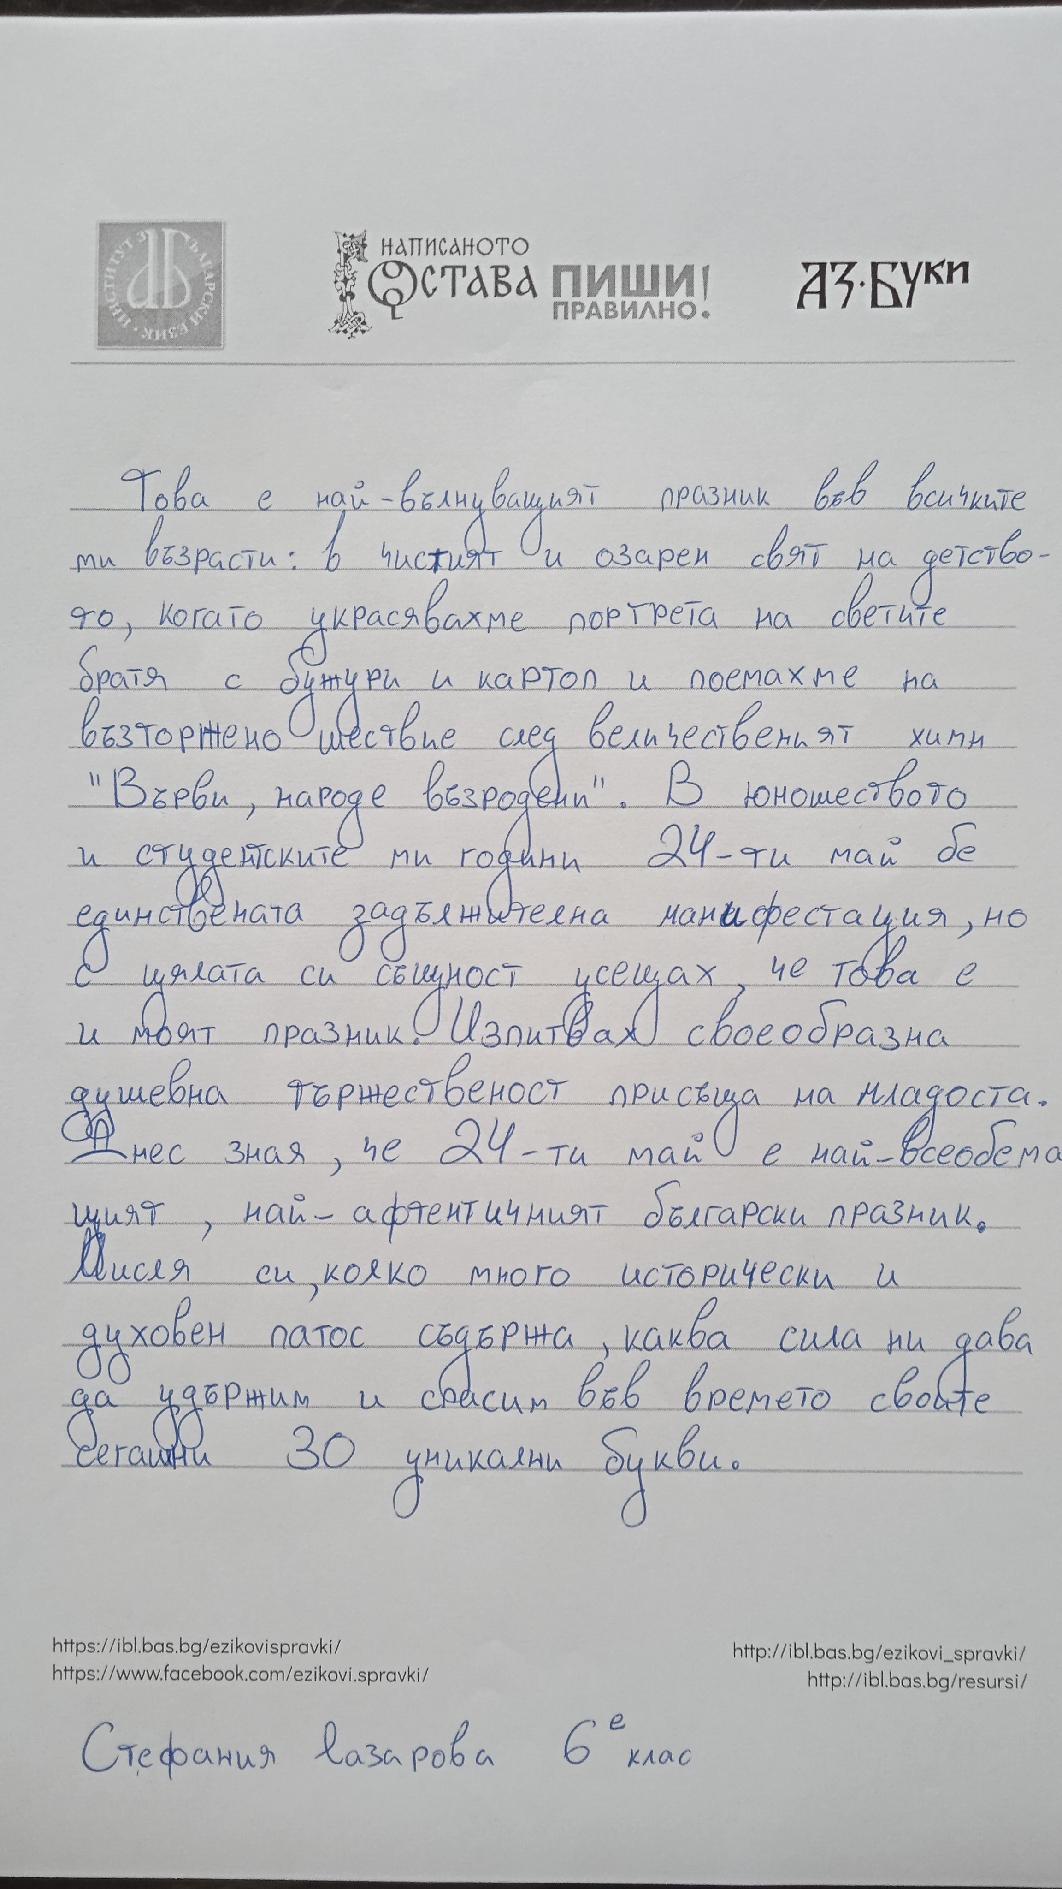 ИНСТИТУТ ЗА БЪЛГАРСКИ ЕЗИК
НАПИСАНОТО
ОСТАВА
ПИШИ!
ПРАВИЛНО.
АЗ·БУКИ
Това е най-вълнуващият празник във всичките
ми възрасти: в чистият и озарен свят на детство-
то, когато украсявахме портрета на светите
братя с бужури и картоп и поемахме на
възторжено шествие след величественият химн
"Върви, народе възродени". В юношеството
и студентските ми години 24-ти май бе
единствената задължителна манифестация, но
с цялата си същност усещах, че това е
и моят празник. Изпитвах своеобразна
душевна тържественост присъща на младоста.
Днес зная, че 24-ти май е най-всеобема
щият, най-афтентичният български празник.
Мисля си, колко много исторически и
духовен патос съдържа, каква сила ни дава
да удържим и спасим във времето своите
сегашни 30 уникални букви.
https://ibl.bas.bg/ezikovispravki/
https://www.facebook.com/ezikovi.spravki/
http://ibl.bas.bg/ezikovi_spravki/
http://ibl.bas.bg/resursi/
Стефания Лазарова 6е клас